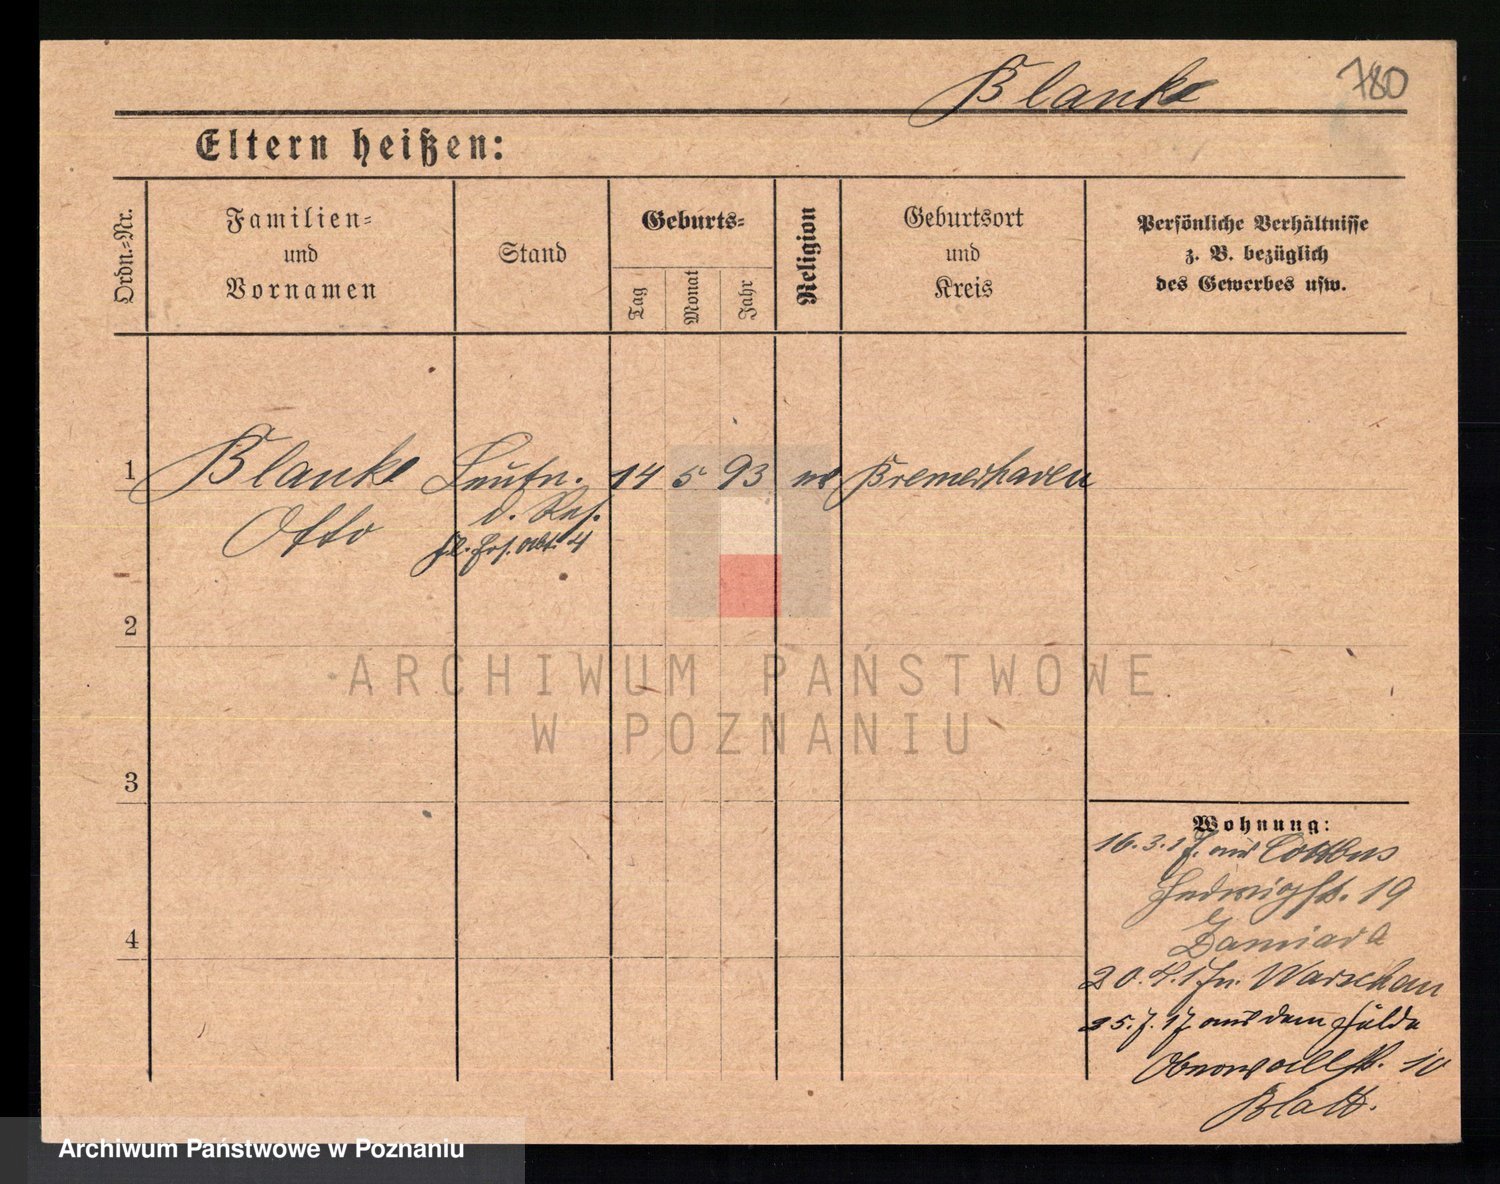 Blanke 780
Eltern heißen:
Ordn.=Nr.
Familien=
und
Vornamen
Stand
Geburts=
Tag
Monat
Jahr
Religion
Geburtsort
und
Kreis
Persönliche Verhältnisse
z. B. bezüglich
des Gewerbes usw.
1 Blanke Leutn. 14 5 93 Bremerhaven
Otto d. Res.
4
2
ARCHIWUM PAŃSTWOWE
W POZNANIU
3
Wohnung:
16.3.17. aus Cottbus
Hedwigstr. 19
4
20.4.17 n. Warschau
25.7.17 aus dem Felde
Oberwallstr. 10
Blatt.
Archiwum Państwowe w Poznaniu